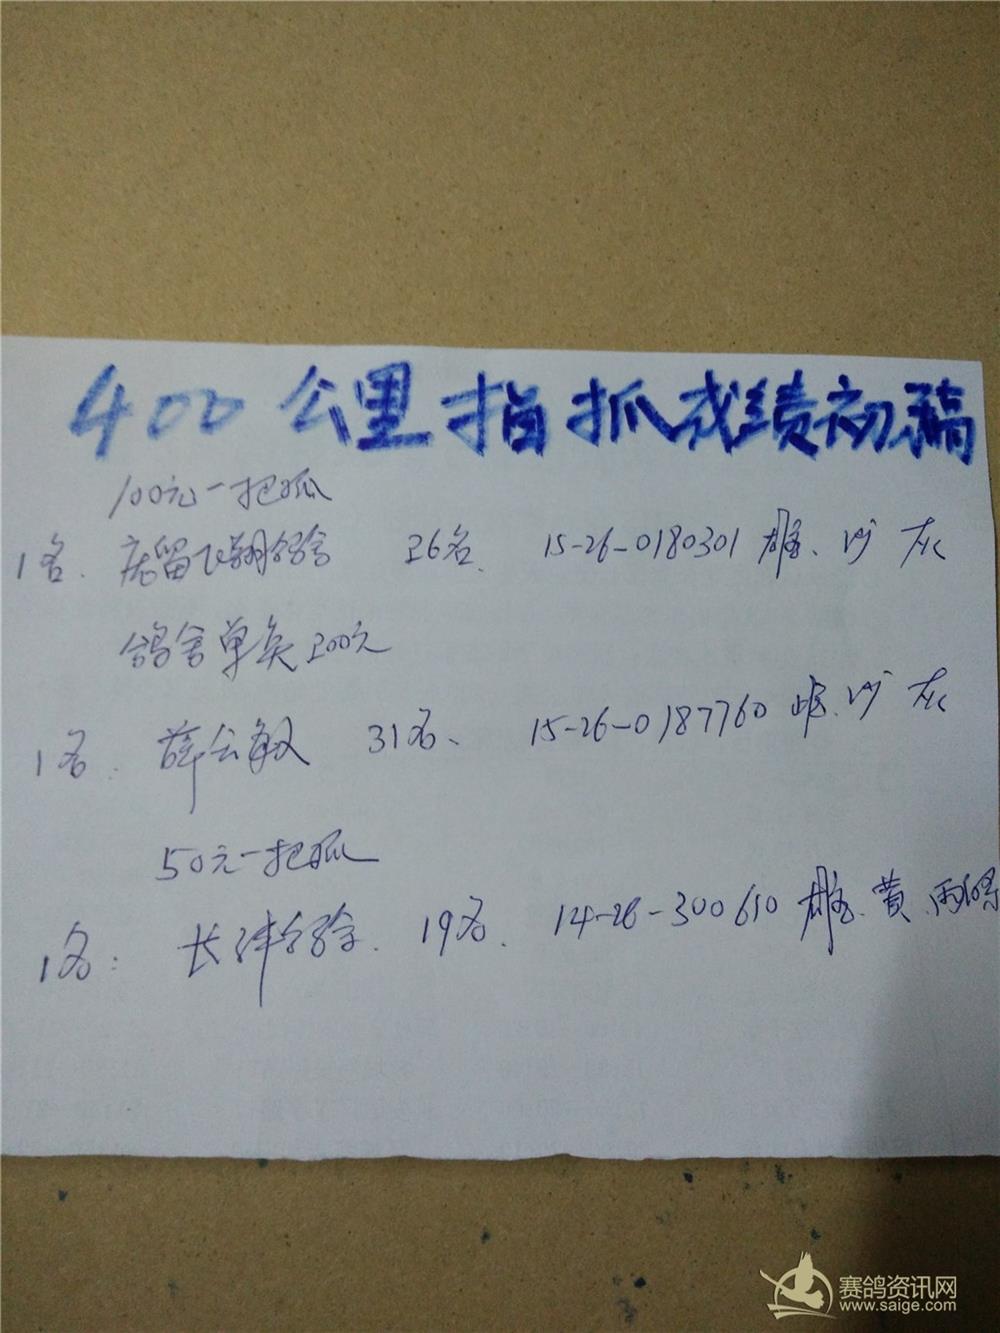 400公里指抓成绩初稿
100元一把抓
1名. 屯留飞翔鸽舍 26名. 15-26-0180301 雄、沙灰
鸽舍单关200元
1名. 薛云敏 31名、 15-26-0187760 雌、沙灰
50元一把抓
1名: 长 鸽舍. 19名、 14-26-300610 雄、黄、雨
赛鸽资讯网
www.saige.com